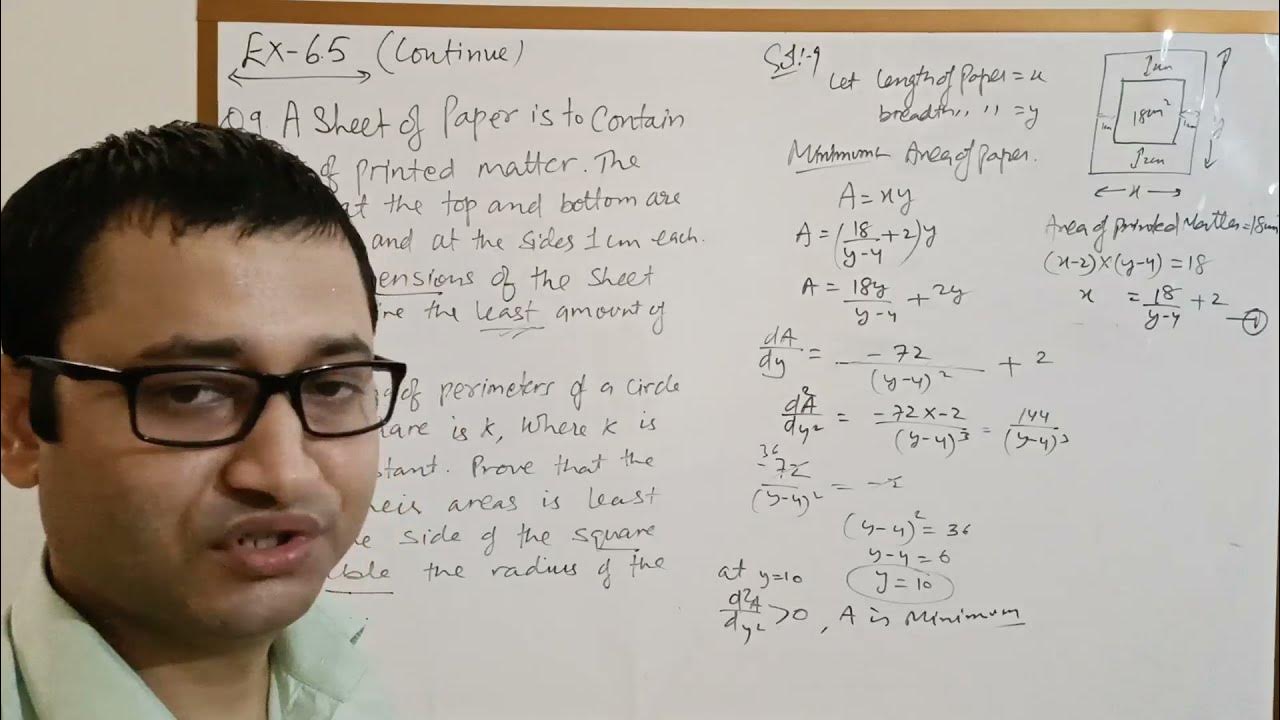 Ex-6.5 (Continue)
Q9. A Sheet of Paper is to Contain
of printed matter. The
at the top and bottom are
and at the sides 1 cm each.
ensions of the sheet
ire the least amount of
of perimeters of a circle
are is k, where k is
stant. Prove that the
heir areas is least
e side of the square
uble the radius of the
Sol:-9
Let length of Paper = x
breadth ,, ,, = y
Minimum Area of paper.
A = xy
A = (18/(y-4) + 2)y
A = 18y/(y-4) + 2y
dA/dy = -72/(y-4)² + 2
d²A/dy² = -72×-2/(y-4)³ = 144/(y-4)³
36
-72/(y-4)² = -2
(y-4)² = 36
y-4 = 6
y = 10
at y=10
d²A/dy² > 0, A is Minimum
2cm
1cm
18cm²
1cm
2cm
x
Area of printed Matter = 18cm
(x-2)×(y-4) = 18
x = 18/(y-4) + 2 —①